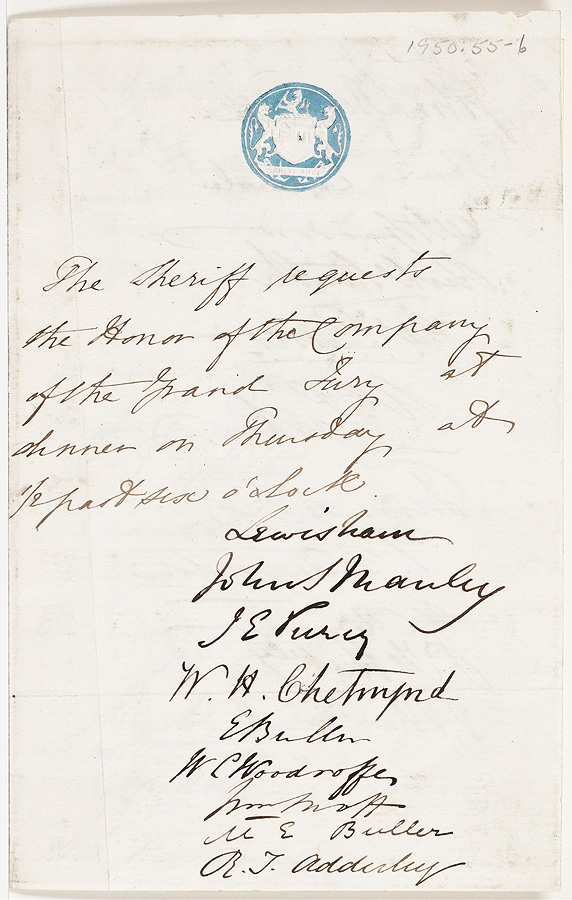 1950:55-6
The Sheriff requests
the Honor of the Company
of the Grand Jury at
dinner on Thursday at
1/2 past six o'clock.
Lewisham
John S Manley
W. H. Chetwynd
E Buller
W C Woodroffe
M E Buller
R. T. Adderley